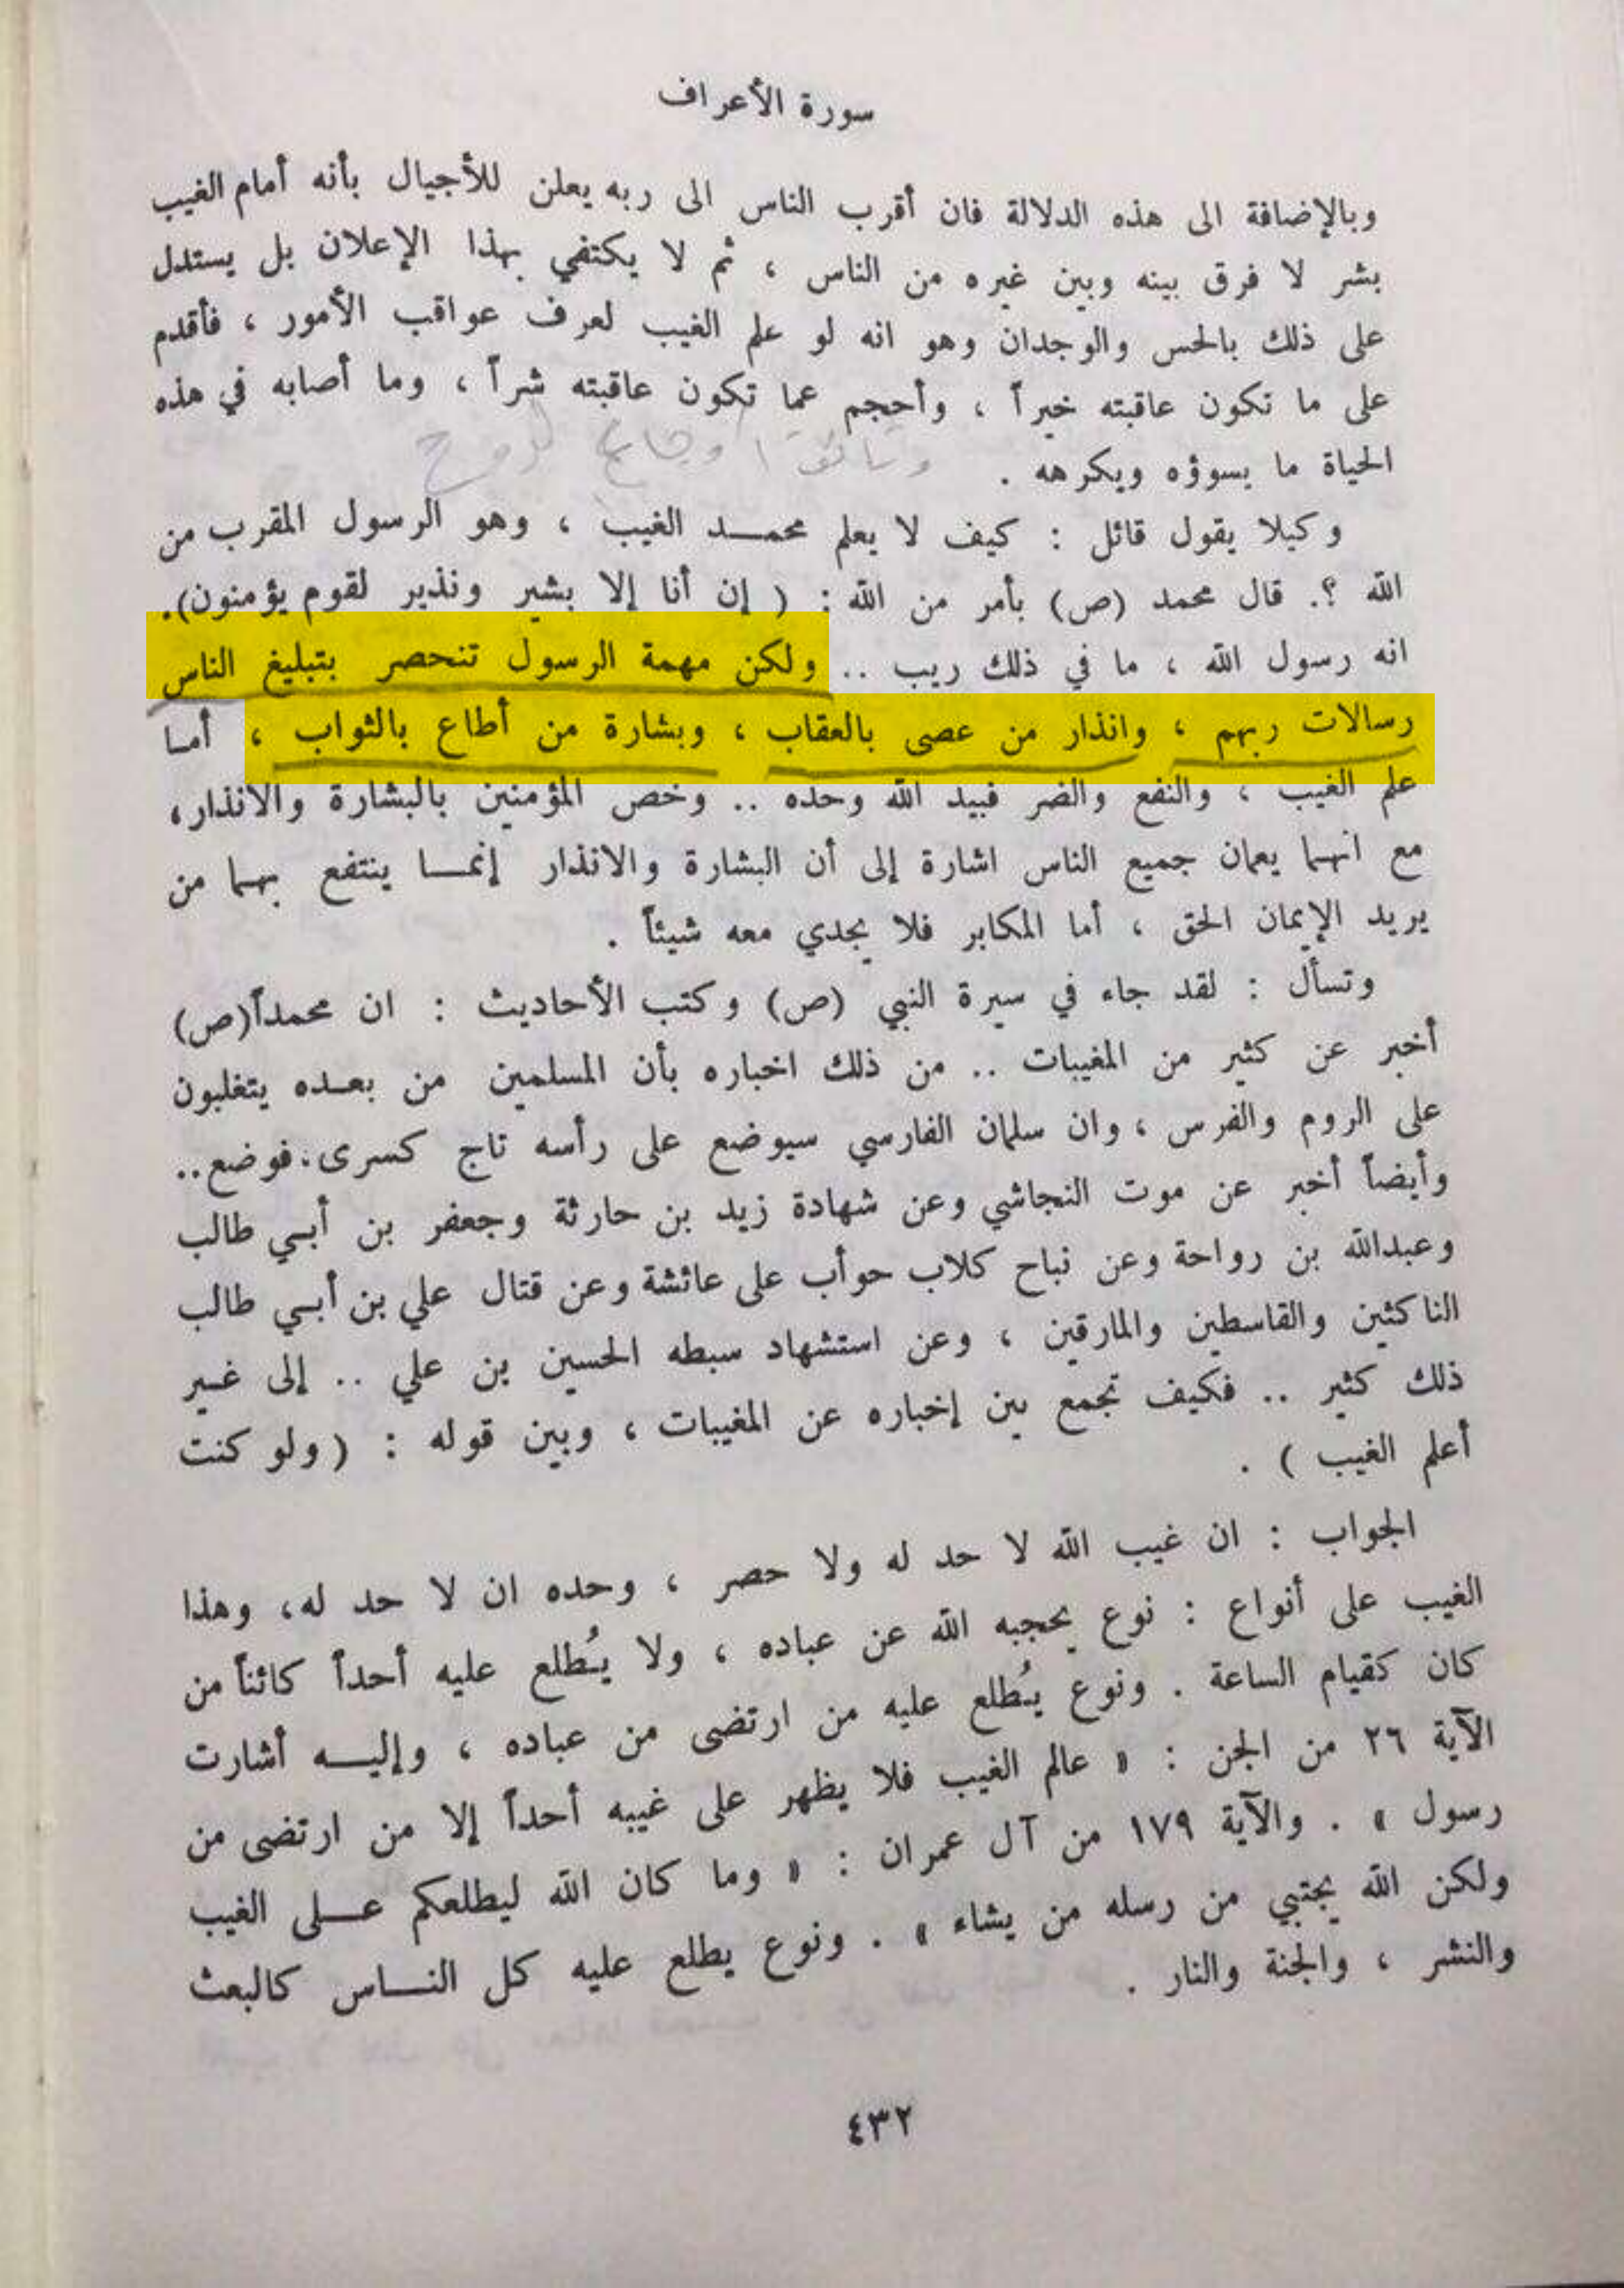 سورة الأعراف
وبالإضافة الى هذه الدلالة فان أقرب الناس الى ربه يعلن للأجيال بأنه أمام الغيب
بشر لا فرق بينه وبين غيره من الناس ، ثم لا يكتفي بهذا الإعلان بل يستدل
على ذلك بالحس والوجدان وهو انه لو علم الغيب لعرف عواقب الأمور ، فأقدم
على ما تكون عاقبته خيراً ، وأحجم عما تكون عاقبته شراً ، وما أصابه في هذه
الحياة ما يسوؤه ويكرهه .
وكيلا يقول قائل : كيف لا يعلم محمـــد الغيب ، وهو الرسول المقرب من
الله ؟. قال محمد (ص) بأمر من الله : ( إن أنا إلا بشير ونذير لقوم يؤمنون).
انه رسول الله ، ما في ذلك ريب .. ولكن مهمة الرسول تنحصر بتبليغ الناس
رسالات ربهم ، وانذار من عصى بالعقاب ، وبشارة من أطاع بالثواب ، أمـا
علم الغيب ، والنفع والضر فبيد الله وحده .. وخص المؤمنين بالبشارة والانذار،
مع انهـما يعمان جميع الناس اشارة إلى أن البشارة والانذار إنمـــا ينتفع بهـما من
يريد الإيمان الحق ، أما المكابر فلا يجدي معه شيئاً .
وتسأل : لقد جاء في سيرة النبي (ص) وكتب الأحاديث : ان محمداً(ص)
أخبر عن كثير من المغيبات .. من ذلك اخباره بأن المسلمين من بعـده يتغلبون
على الروم والفرس ، وان سلمان الفارسي سيوضع على رأسه تاج كسرى، فوضع..
وأيضاً أخبر عن موت النجاشي وعن شهادة زيد بن حارثة وجعفر بن أبـي طالب
وعبدالله بن رواحة وعن نباح كلاب حوأب على عائشة وعن قتال علي بن أبـي طالب
الناكثين والقاسطين والمارقين ، وعن استشهاد سبطه الحسين بن علي .. إلى غـير
ذلك كثير .. فكيف تجمع بين إخباره عن المغيبات ، وبين قوله : ( ولو كنت
أعلم الغيب ) .
الجواب : ان غيب الله لا حد له ولا حصر ، وحده ان لا حد له، وهذا
الغيب على أنواع : نوع يحجبه الله عن عباده ، ولا يُطلع عليه أحداً كائناً من
كان كقيام الساعة . ونوع يُطلع عليه من ارتضى من عباده ، وإليـــه أشارت
الآية ٢٦ من الجن : « عالم الغيب فلا يظهر على غيبه أحداً إلا من ارتضى من
رسول » . والآية ١٧٩ من آل عمران : « وما كان الله ليطلعكم عـــلى الغيب
ولكن الله يجتبي من رسله من يشاء » . ونوع يطلع عليه كل النـــاس كالبعث
والنشر ، والجنة والنار .
٤٣٢